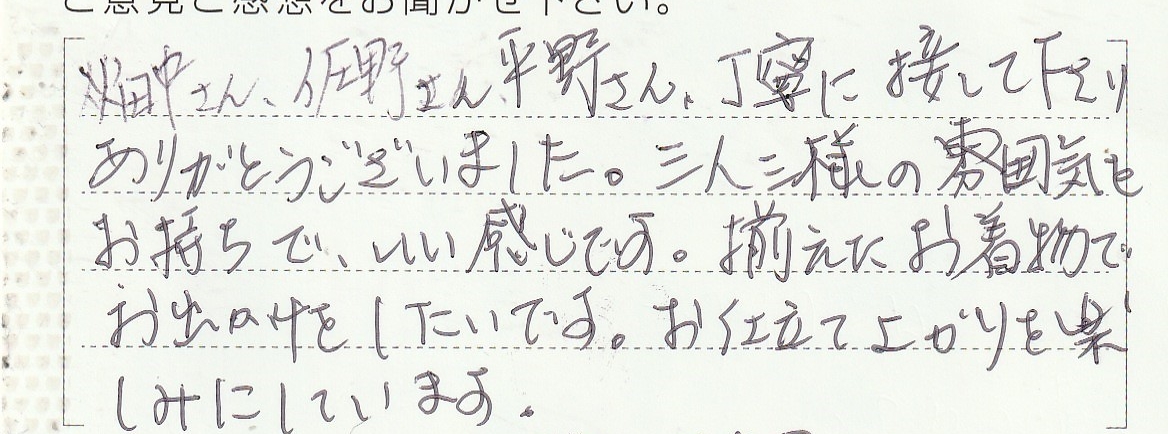 ご意見ご感想をお聞かせ下さい。
畑中さん、佐野さん、平野さん、丁寧に接して下さり
ありがとうございました。三人三様の雰囲気を
お持ちで、いい感じです。揃えたお着物で
お出かけをしたいです。お仕立て上がりを楽
しみにしています。